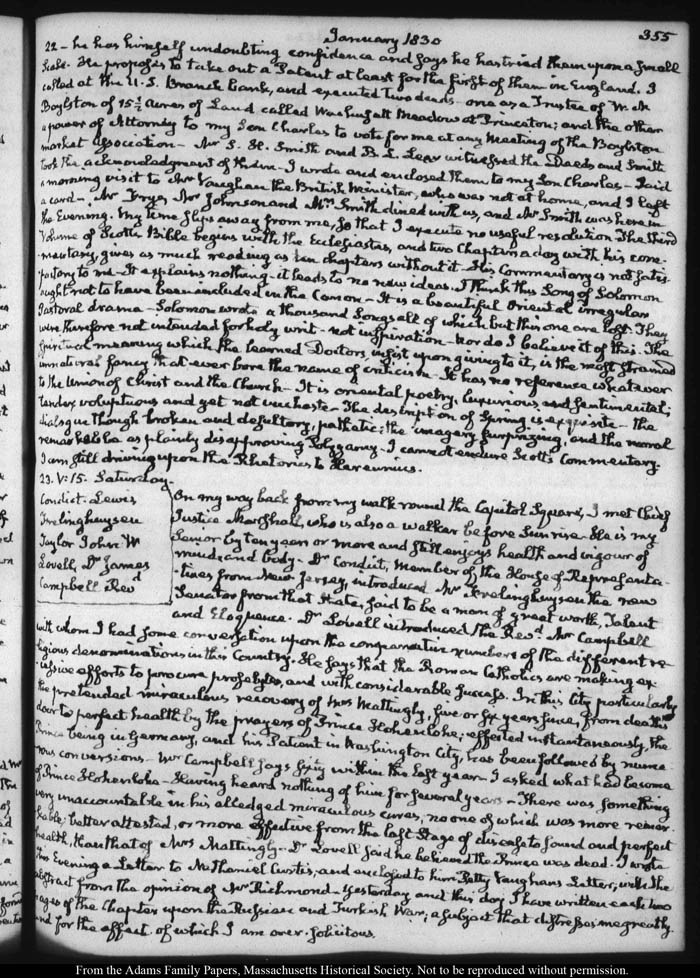 January 1830
355
22 - he has himself undoubting confidence and says he has tried them upon a small
scale. He proposes to take out a Patent at least for the first of them in England. I
called at the U.S. Branch Bank, and executed two deeds - one as a Trustee of W. N
Boylston of 15¾ Acres of Land called Wachusett Meadow at Princeton; and the other
a power of Attorney to my Son Charles to vote for me at any Meeting of the Boylston
market Association - Mr S. H. Smith and B. L. Lear witnessed the Deeds and Smith
took the acknowledgment of them - I wrote and enclosed them to my Son Charles - Paid
a morning visit to Mr Vaughan the British Minister, who was not at home, and I left
a card - Mr Frye, Mr Johnson and Mrs Smith dined with us, and Mr Smith was here in
the Evening. My time slips away from me, so that I execute no useful resolution. The third
Volume of Scott's Bible begins with the Ecclesiastes, and two Chapters a day with his com-
mentary, gives as much reading as ten chapters without it. His Commentary is not satis-
factory to me - It explains nothing - it leads to no new ideas. I think this Song of Solomon
ought not to have been included in the Canon - It is a beautiful Oriental irregular
Pastoral drama - Solomon wrote a thousand Songs all of which but this one are lost. They
were therefore not intended for holy writ - not inspiration - nor do I believe it of this. The
spiritual meaning which the learned Doctors insist upon giving to it, is the most strained
unnatural fancy that ever bore the name of criticism - It has no reference whatever
to the Union of Christ and the Church - It is oriental poetry, luxurious and sentimental;
tender, voluptuous and yet not unchaste - The description of Spring is exquisite - the
dialogue though broken and desultory, pathetic; the imagery surprizing, and the moral
remarkable as plainly disapproving Polygamy. I cannot endure Scott's Commentary.
I am still driving upon the Rhetorics to Herennius.
23. V:15. Saturday.
Condict. Lewis
Frelinghuysen
Taylor John W
Lovell, Dr James
Campbell Revd
On my way back from my walk round the Capitol Square, I met Chief
Justice Marshall, who is also a walker before Sun rise. He is my
Senior by ten years or more and still enjoys health and vigour of
mind and body - Dr Condict, Member of the House of Representa-
tives from New Jersey, introduced Mr Frelinghuysen the new
Senator from that State, said to be a man of great worth, Talent
and Eloquence. Dr Lovell introduced the Revd. Mr Campbell
with whom I had some conversation upon the comparative numbers of the different re-
ligious denominations in this Country. He says that the Roman Catholics are making ex-
cessive efforts to procure proselytes, and with considerable success. In this City particularly
the pretended miraculous recovery of Mrs Mattingly, five or six years since, from death's
door to perfect health by the prayers of Prince Hohenlohe, effected instantaneously, the
Prince being in Germany, and his Patient in Washington City, has been followed by nume-
rous conversions - Mr Campbell says sixty within the last year - I asked what had become
of Prince Hohenlohe - Having heard nothing of him for several years - There was something
very unaccountable in his alledged miraculous cures, no one of which was more remar-
kable, better attested, or more effective from the last stage of disease to sound and perfect
health, than that of Mrs Mattingly - Dr Lovell said he believed the Prince was dead. I wrote
this Evening a Letter to Nathaniel Curtis, and enclosed to him Petty Vaughan's Letter, with the
abstract from the opinion of Mr Richmond - Yesterday and this day I have written each two
pages of the Chapter upon the Russian and Turkish War; a subject that distresses me greatly
and for the effect of which I am over-solicitous.
From the Adams Family Papers, Massachusetts Historical Society. Not to be reproduced without permission.